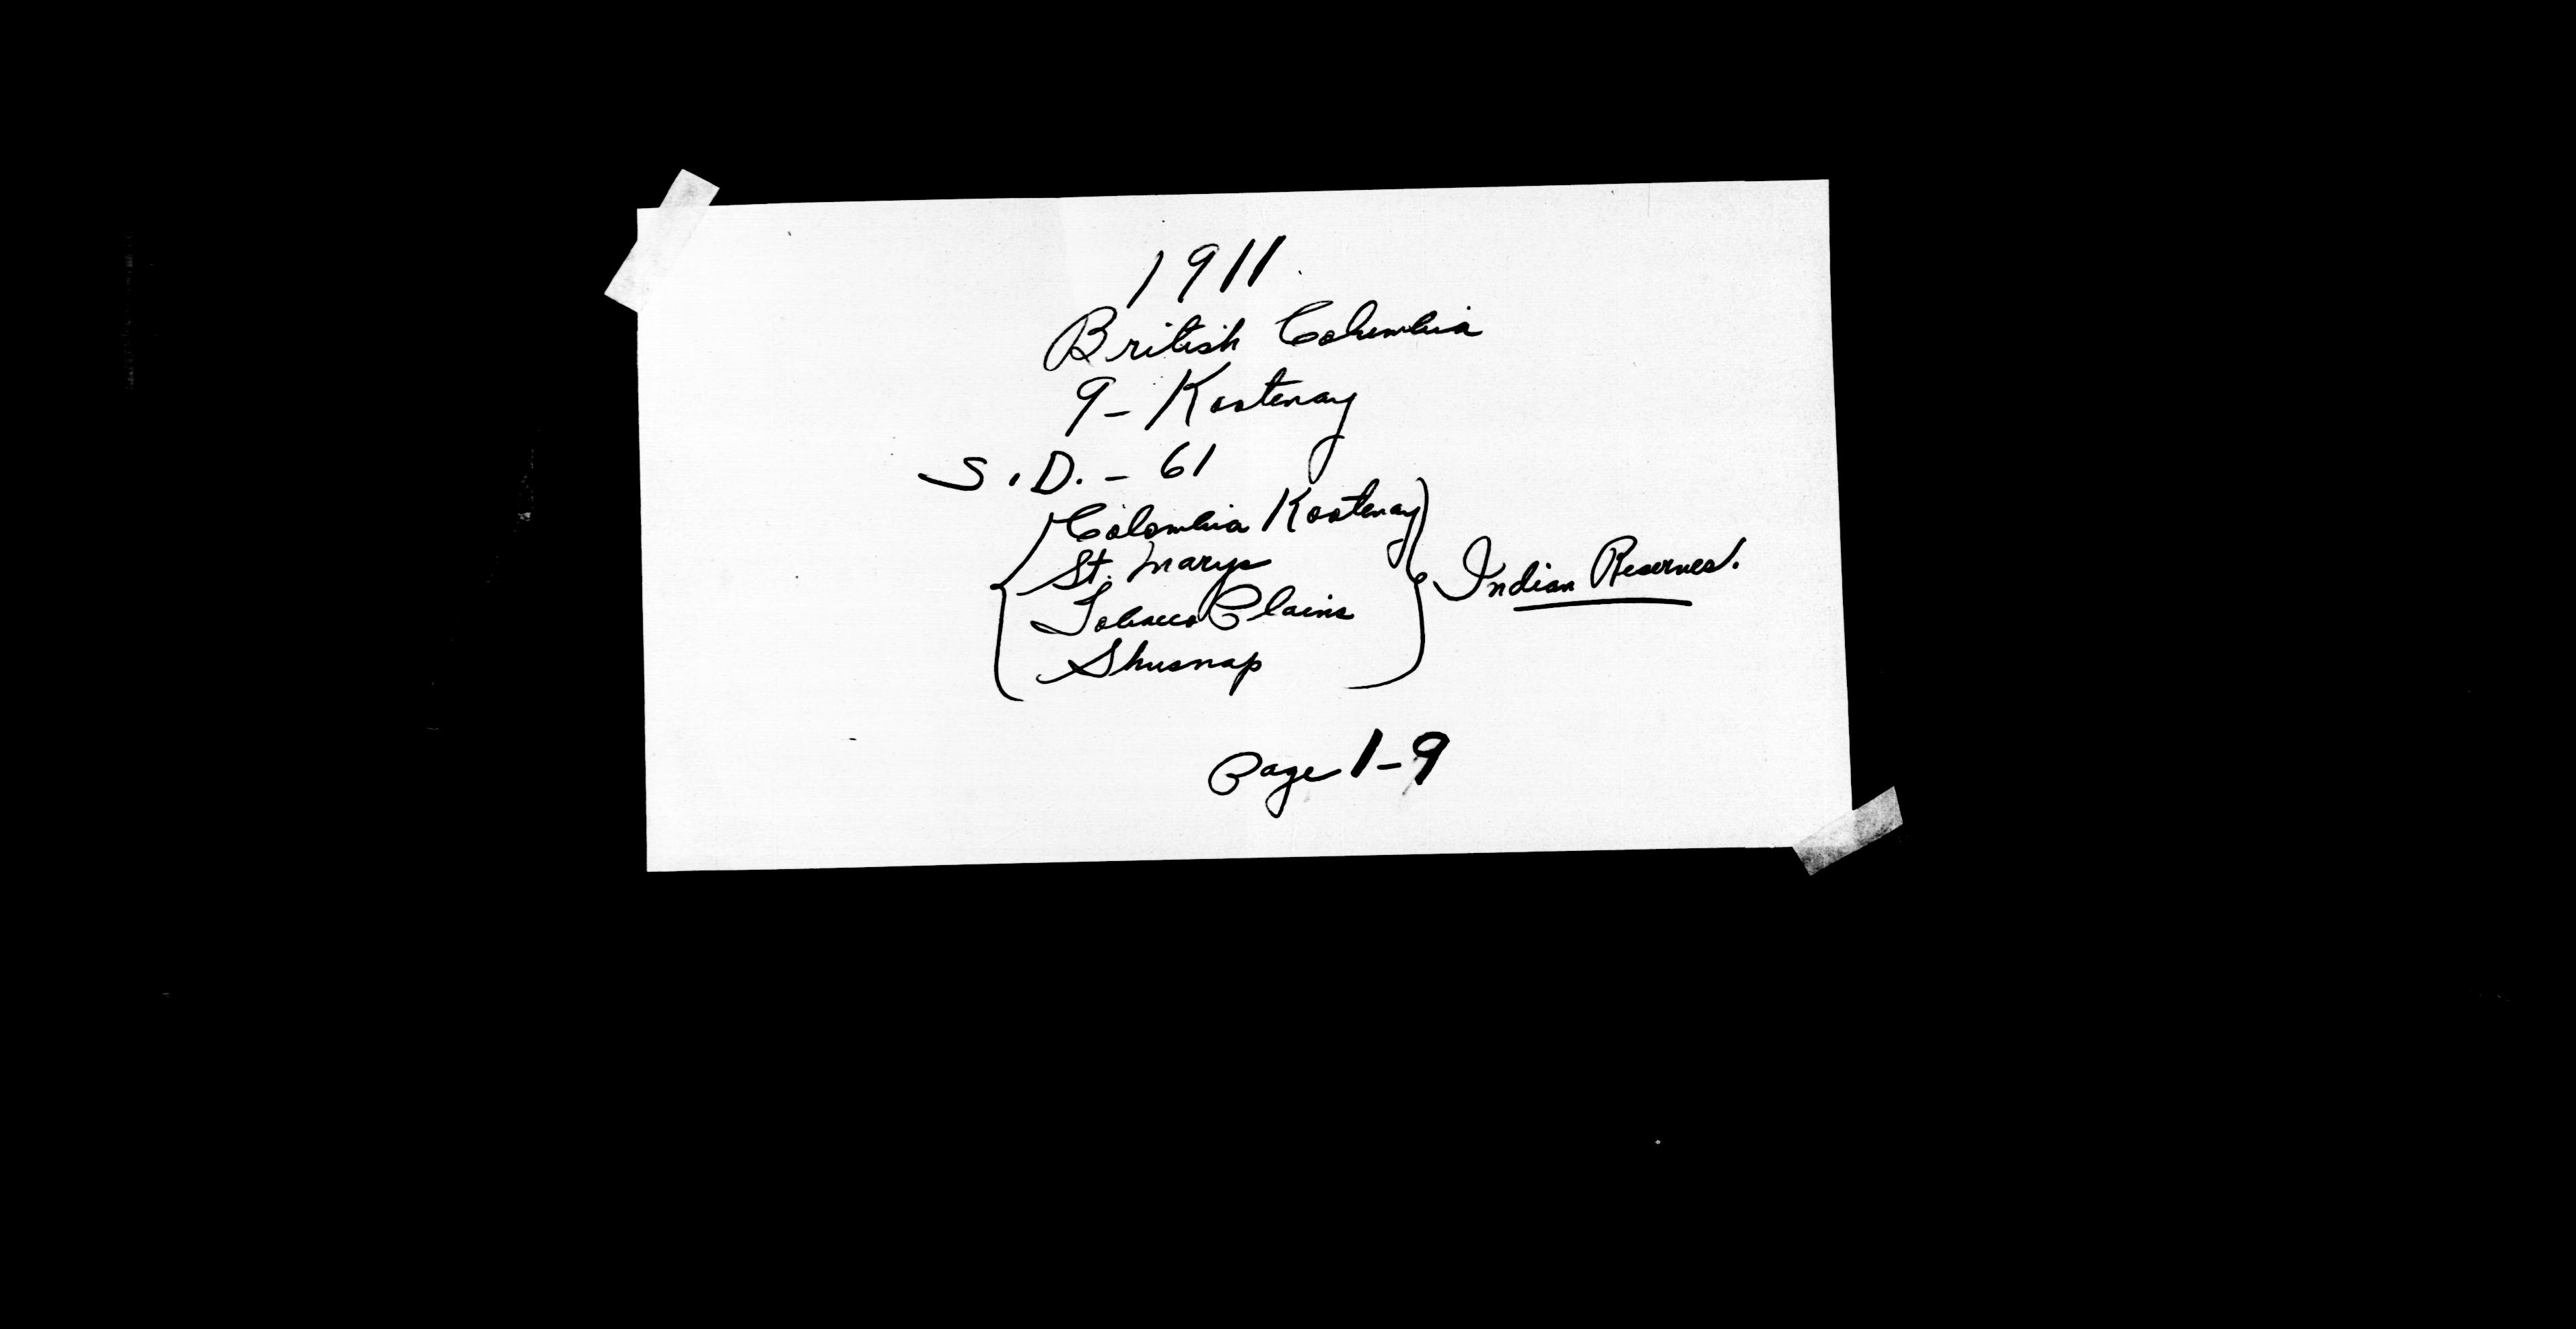 1911
British Columbia
9- Kootenay
S.D. - 61
Colombia Kootenay
St. Marys
Tobacco Plains
Shusnap
Indian Reserves.
Page 1-9